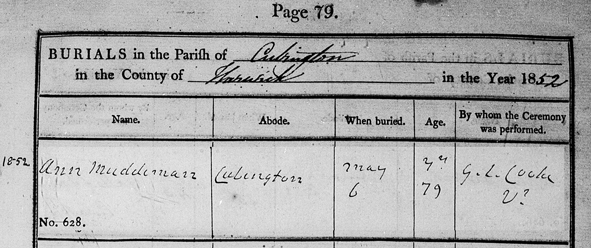 Page 79.
BURIALS in the Parish of Cubington
in the County of Warwick in the Year 1852
Name. Abode. When buried. Age. By whom the Ceremony was performed.
1852 Ann Muddeman Cubington May 6 yrs 79 G. L. Cooke V.
No. 628.